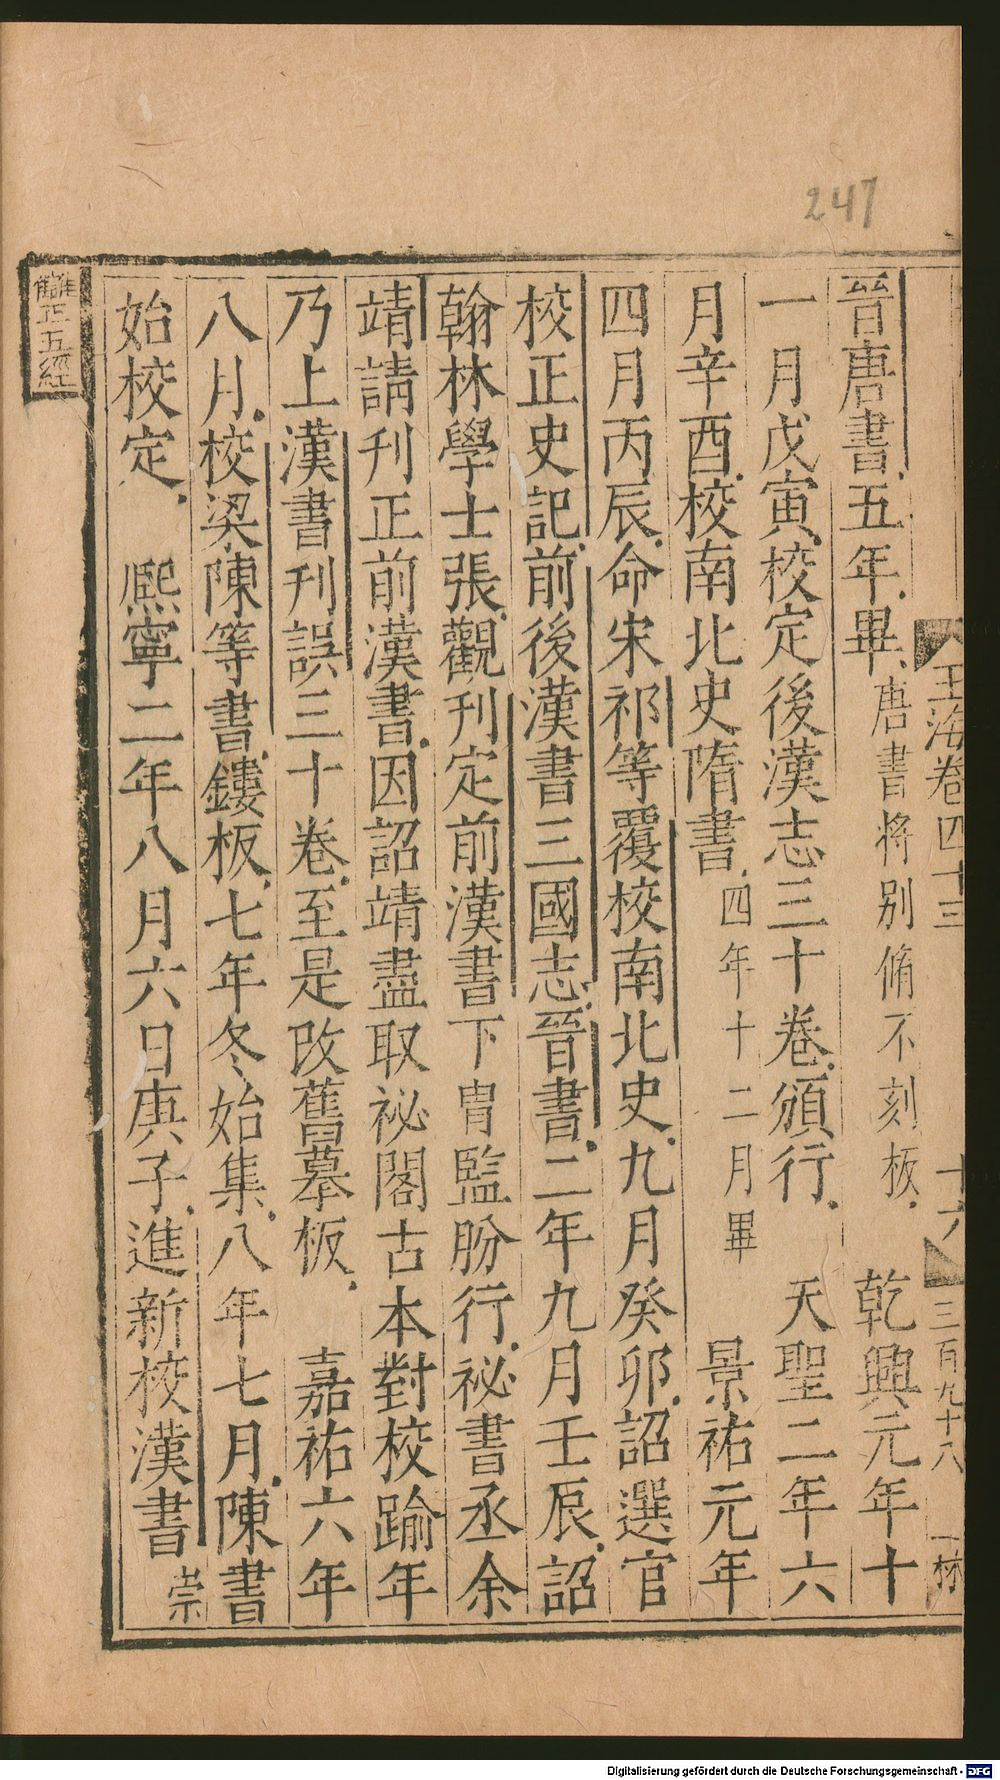 247
玉海卷四十三
十六
三百九十八
晉唐書五年畢唐書將別脩不刻板 乾興元年十
一月戊寅校定後漢志三十卷頒行 天聖二年六
月辛酉校南北史隋書四年十二月畢 景祐元年
四月丙辰命宋祁等覆校南北史九月癸卯詔選官
校正史記前後漢書三國志晉書二年九月壬辰詔
翰林學士張觀刊定前漢書下胄監頒行祕書丞余
靖請刊正前漢書因詔靖盡取祕閣古本對校踰年
乃上漢書刊誤三十卷至是改舊摹板 嘉祐六年
八月校梁陳等書鏤板七年冬始集八年七月陳書
始校定 熙寧二年八月六日庚子進新校漢書崇
讎正五經
Digitalisierung gefördert durch die Deutsche Forschungsgemeinschaft - DFG